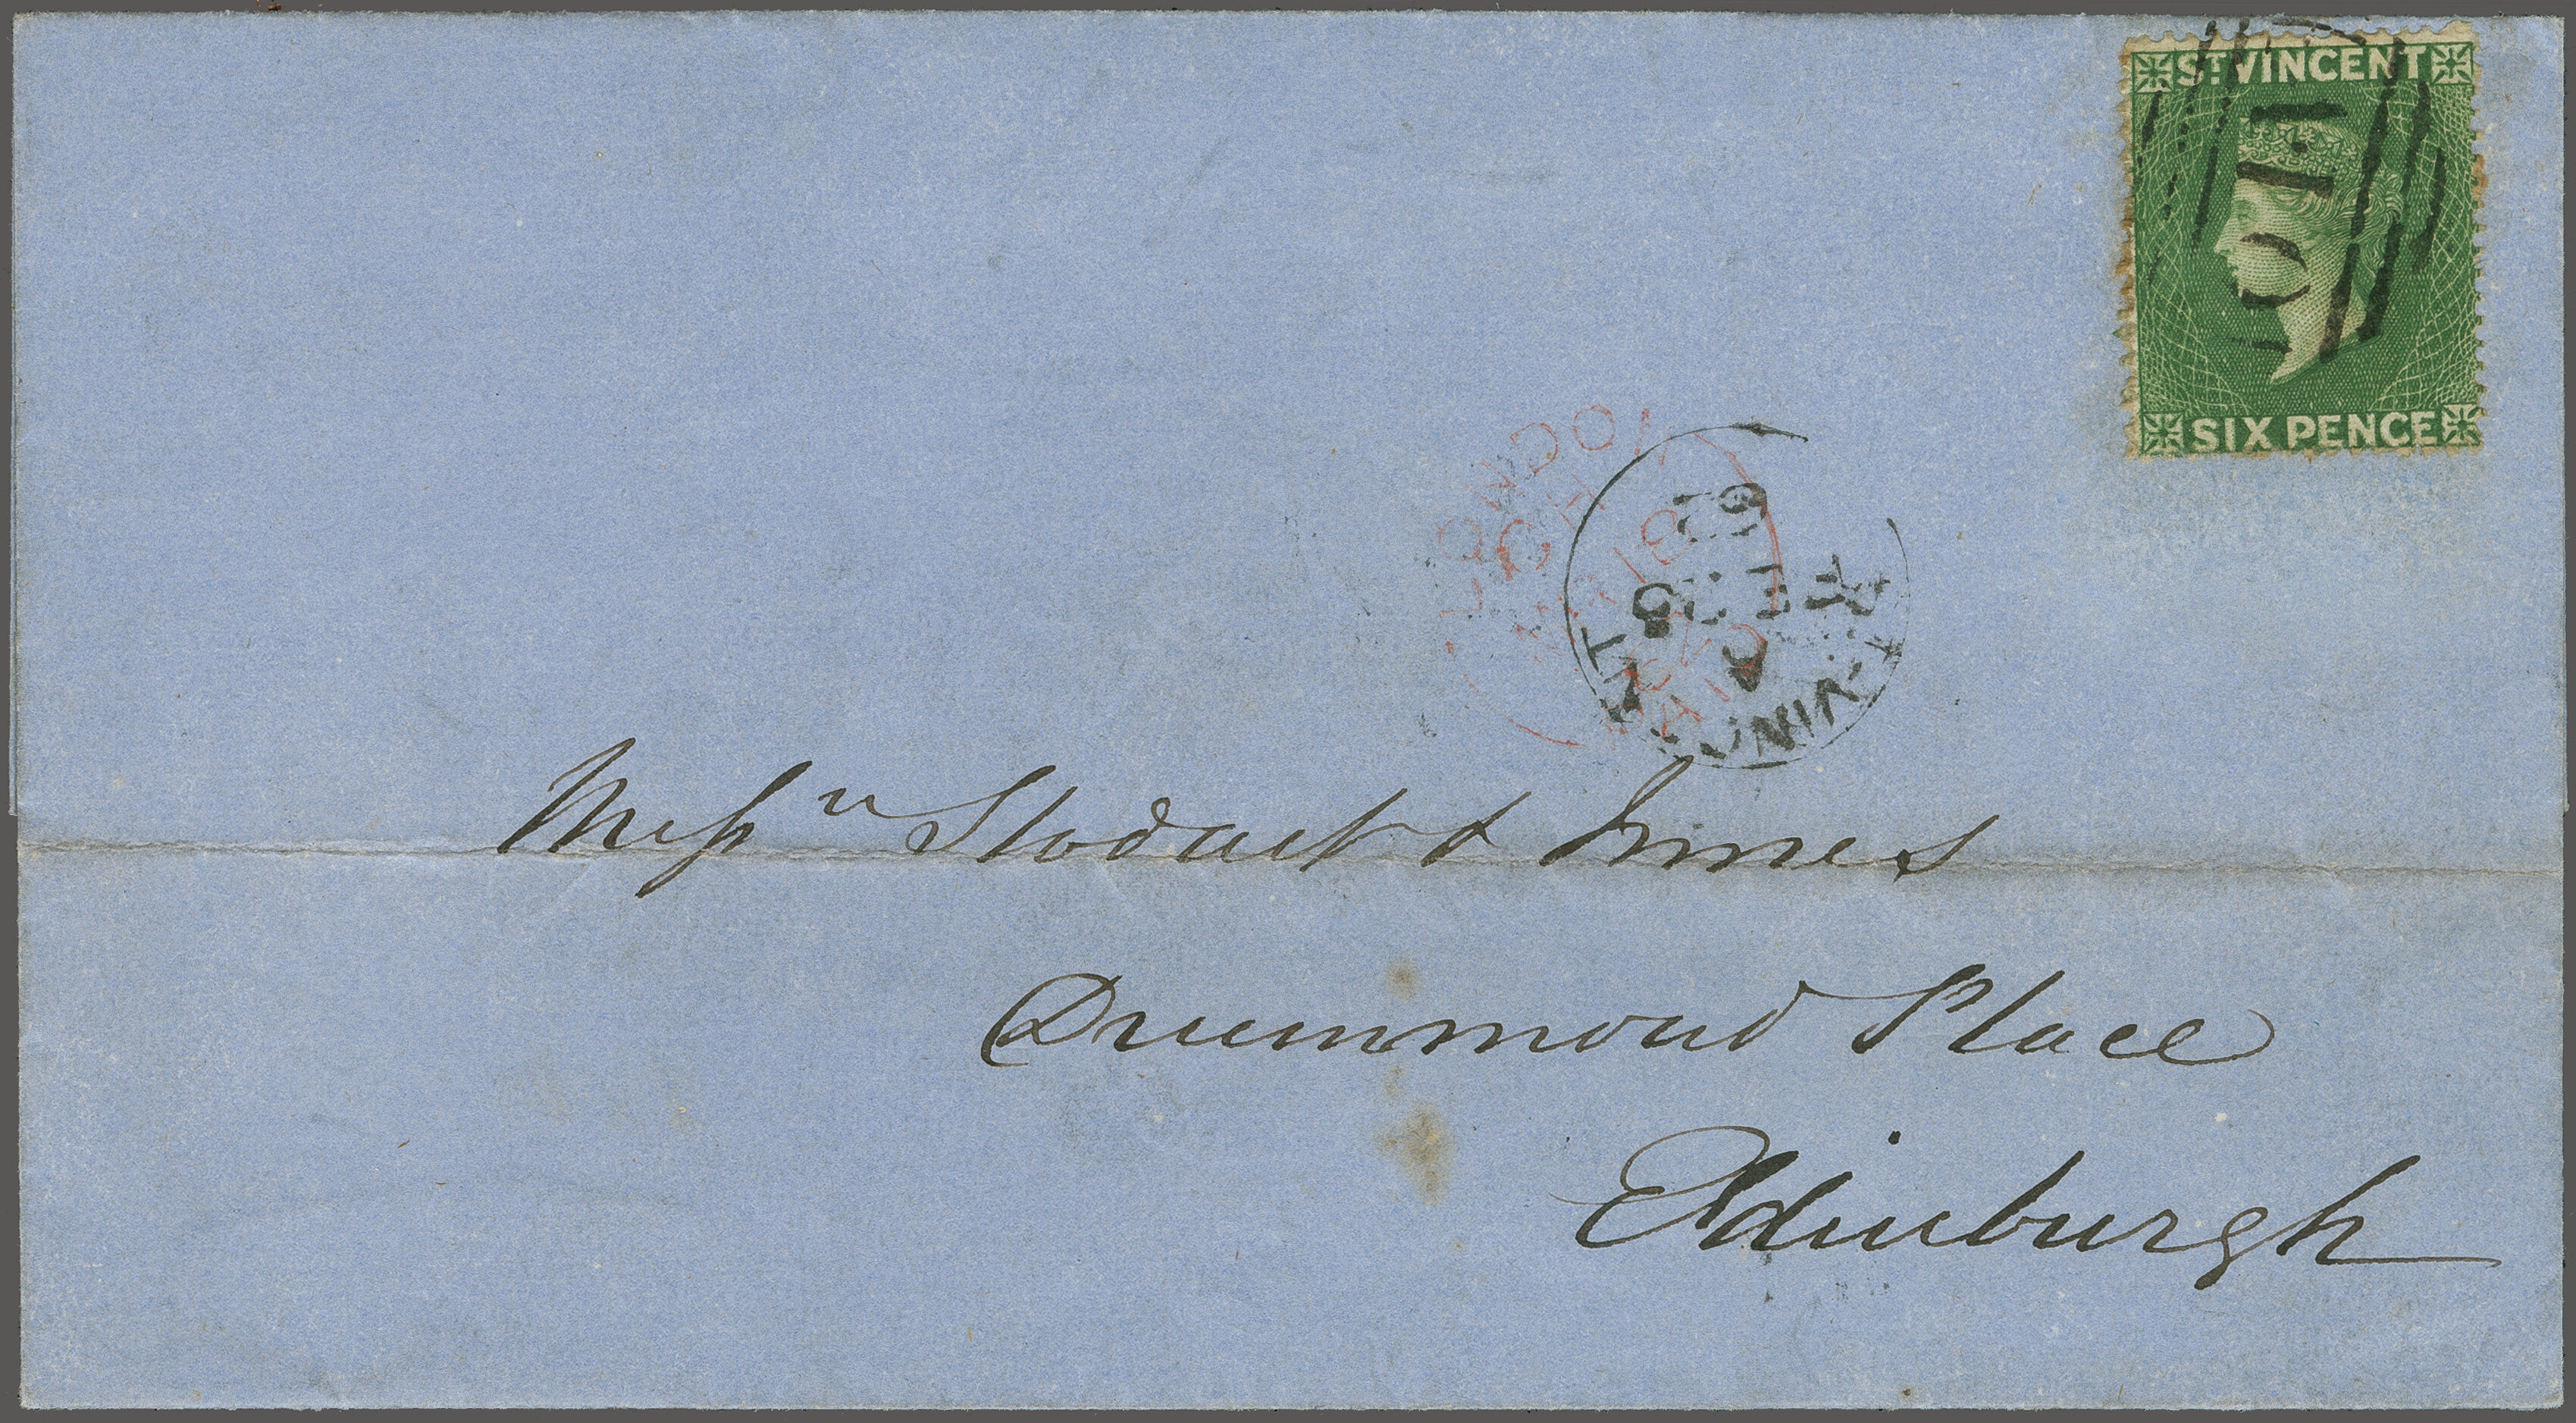 ST. VINCENT
SIX PENCE
LONDON
PAID
ST. VINCENT
A
Messrs Stodart & Innes
Drummond Place
Edinburgh